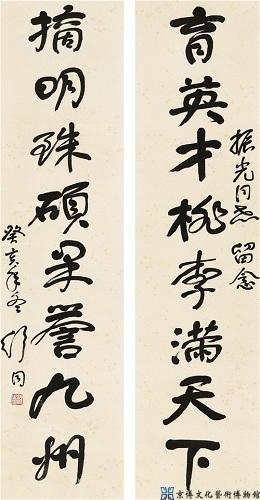 育英才桃李满天下
振光同志 留念
摘明珠硕果誉九州
癸亥年冬 舒同
京博文化藝術博物館